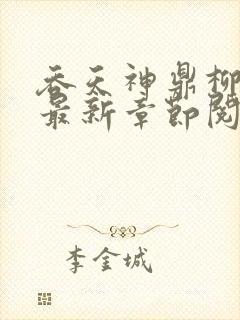 吞天神鼎柳
最新章节阅
李金城